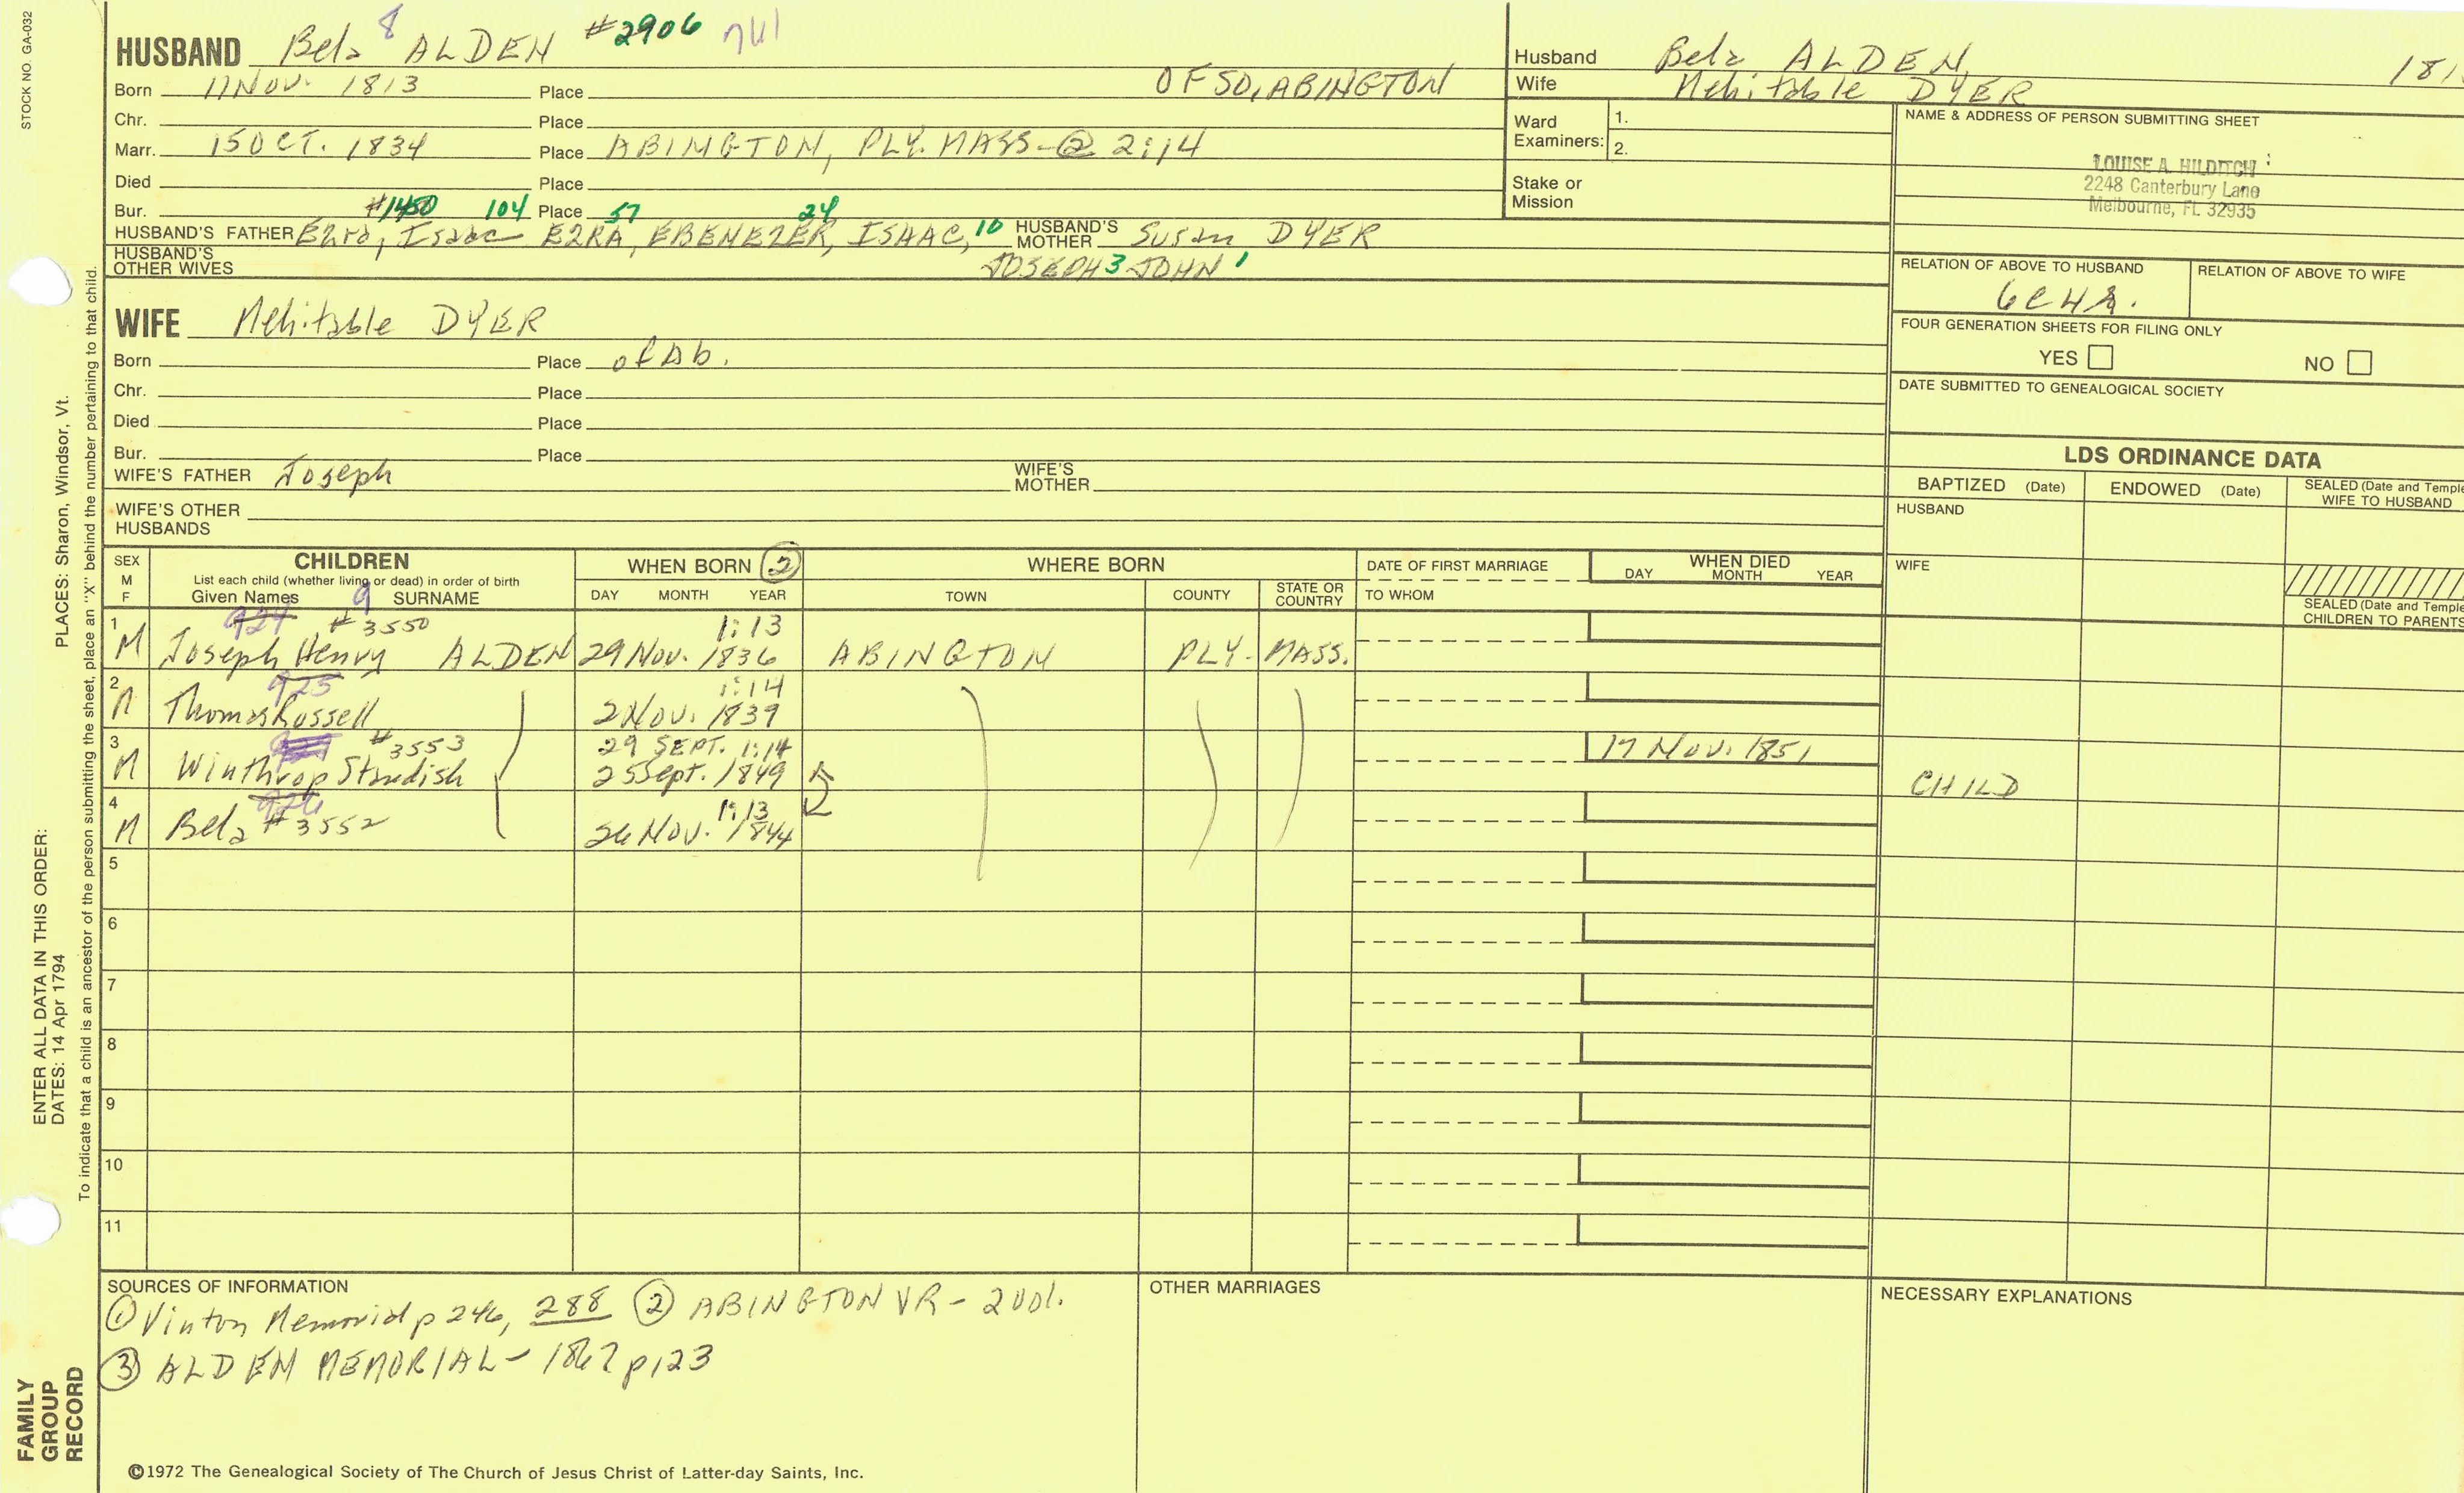 STOCK NO. GA-032
HUSBAND Bela 8 ALDEN #2906
Born 11 Nov. 1813 Place OF SO, ABINGTON
Chr. Place
Marr. 15 OCT. 1834 Place ABINGTON, PLY. MASS-@ 2:14
Died Place
Bur. Place
#1450 104 57 24
HUSBAND'S FATHER Ezra, Isaac EZRA, EBENEZER, ISAAC, 10 HUSBAND'S MOTHER Susan DYER
HUSBAND'S OTHER WIVES JOSEPH 3 JOHN 1
WIFE Mehitable DYER
Born Place of Ab.
Chr. Place
Died Place
Bur. Place
WIFE'S FATHER Joseph WIFE'S MOTHER
WIFE'S OTHER HUSBANDS
Husband Bela ALDEN, 181
Wife Mehitable DYER
Ward Examiners: 1.
2.
Stake or Mission
NAME & ADDRESS OF PERSON SUBMITTING SHEET
LOUISE A. HILDITCH
2248 Canterbury Lane
Melbourne, FL 32935
RELATION OF ABOVE TO HUSBAND RELATION OF ABOVE TO WIFE
FOUR GENERATION SHEETS FOR FILING ONLY
YES NO
DATE SUBMITTED TO GENEALOGICAL SOCIETY
LDS ORDINANCE DATA
BAPTIZED (Date) ENDOWED (Date) SEALED (Date and Temple
WIFE TO HUSBAND
HUSBAND
WIFE
SEALED (Date and Temple
CHILDREN TO PARENTS
SEX M F CHILDREN WHEN BORN ② WHERE BORN DATE OF FIRST MARRIAGE WHEN DIED
List each child (whether living or dead) in order of birth
Given Names 9 SURNAME DAY MONTH YEAR TOWN COUNTY STATE OR COUNTRY TO WHOM DAY MONTH YEAR
924 #3550 1:13
1 M Joseph Henry ALDEN 29 Nov. 1836 ABINGTON PLY. MASS.
925 1:14
2 M Thomas Russell 2 Nov. 1839
#3553 29 SEPT. 1:14 17 Nov. 1851
3 M Winthrop Standish 25 Sept. 1849 CHILD
926 1:13
4 M Bela #3552 26 Nov. 1844
5
6
7
8
9
10
11
SOURCES OF INFORMATION
① Vinton Memorial p 246, 288 ② ABINGTON VR - 2 vol.
③ ALDEN MEMORIAL - 1867 p123
OTHER MARRIAGES
NECESSARY EXPLANATIONS
©1972 The Genealogical Society of The Church of Jesus Christ of Latter-day Saints, Inc.
FAMILY GROUP RECORD
ENTER ALL DATA IN THIS ORDER:
DATES: 14 Apr 1794
PLACES: Sharon, Windsor, Vt.
To indicate that a child is an ancestor of the person submitting the sheet, place an "X" behind the number pertaining to that child.